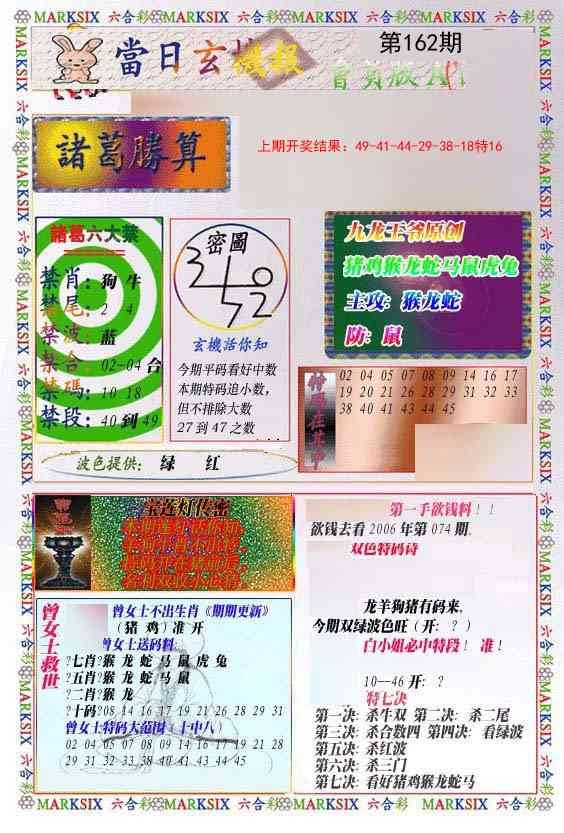 MARKSIX 六合彩 MARKSIX 六合彩 MARKSIX 六合彩 MARKSIX
當日玄機報
第162期
諸葛勝算
上期开奖结果：49-41-44-29-38-18特16
諸葛六大禁
禁肖：狗 牛
禁尾：2 4
禁波：蓝
禁合：02-04 合
禁碼：10 18
禁段：40 到 49
密圖
玄機活你知
今期平码看好中数
本期特码追小数，
但不排除大数
27 到 47 之数
九龙王爷原创
猪鸡猴龙蛇马鼠虎兔
主攻: 猴龙蛇
防: 鼠
特码在其中
02 04 05 07 08 09 14 16 17
19 20 21 26 28 29 31 32 33
38 40 41 43 44 45
波色提供： 绿 红
宝莲灯传密
曾女士救世
曾女士不出生肖《期期更新》
（猪 鸡）准 开
曾女士送码料:
?七肖?猴 龙 蛇 马 鼠 虎 兔
?五肖?猴 龙 蛇 马 鼠
?二肖?猴 龙
?十码?08 14 16 17 19 21 26 28 29 31
曾女士特码大范围（十中八）
02 04 05 07 08 09 14 16 17 19 21 28
29 31 32 33 38 40 41 43 44 45
第一手欲钱料！！
欲钱去看 2006 年第 074 期.
双色特码诗
龙羊狗猪有码来,
今期双绿波色旺（开: ？）
白小姐必中特段！ 准！
10--46 开: ？
特七决
第一决: 杀牛双 第二决: 杀二尾
第三决: 杀合数四 第四决: 看绿波
第五决: 杀红波
第六决: 杀三门
第七决: 看好猪鸡猴龙蛇马
MARKSIX 六合彩 MARKSIX 六合彩 MARKSIX 六合彩 MARKSIX 六合彩